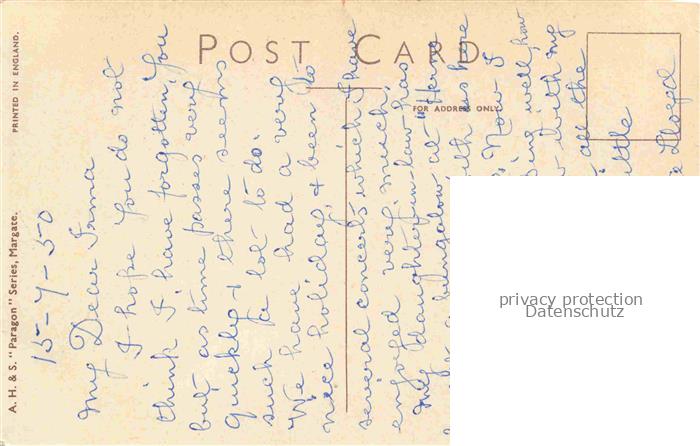 POST CARD
FOR ADDRESS ONLY
PRINTED IN ENGLAND.
A. H. & S. "Paragon" Series, Margate.
15-7-50
My Dear Irma
I hope you do not
think I have forgotten you
but as time passes very
quickly & there seems
such a lot to do.
We have had a very
nice holiday, & been to
several concerts which I have
enjoyed very much.
My daughter-in-law has
a bungalow, at "Herne
with us here
Now I
ing well, how
with my
all the
little
Lloyd
privacy protection
Datenschutz